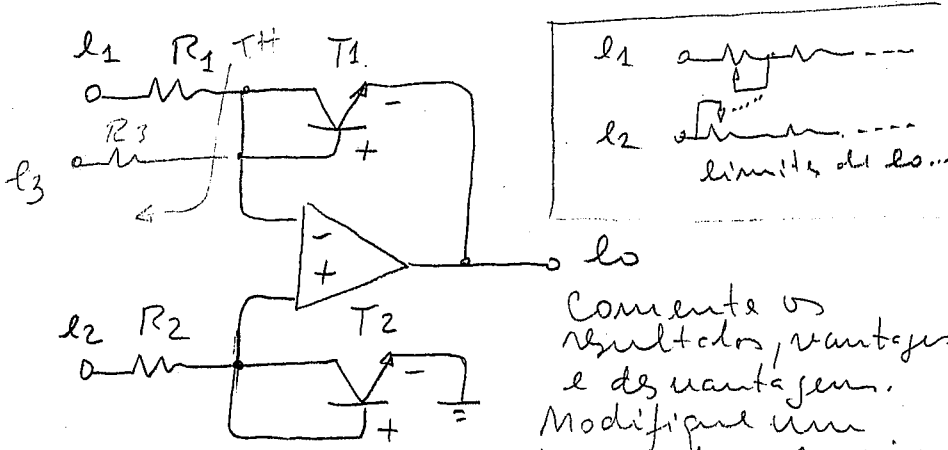 e1 R1 TH T1
R3
e3
- +
-
+
e0
e2 R2 T2
- +
e1 ----
.....
e2 ----
limites de eo...
Comente os
resultados, vantagens
e desvantagens.
Modifique um